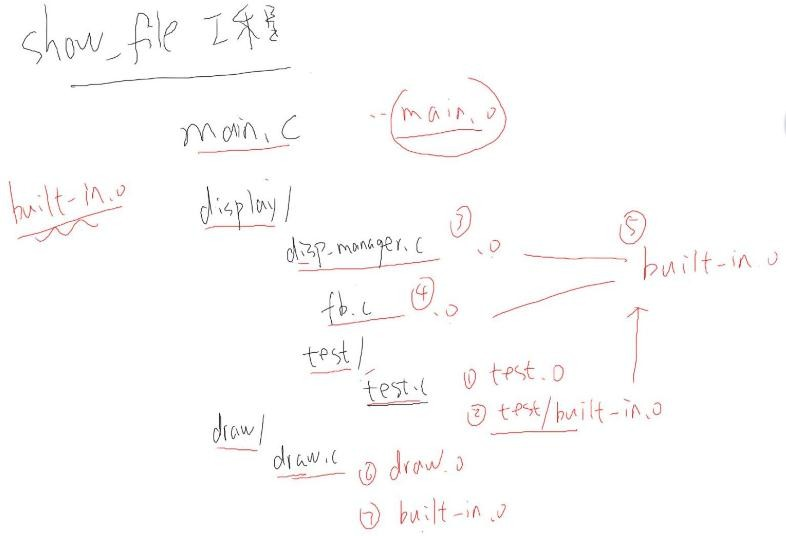 show_file 工程
main.c
main.o
built-in.o
display/
disp_manager.c ③ .o
⑤
built-in.o
fb.c ④ .o
test/
test.c ① test.o
② test/built-in.o
draw/
draw.c ⑥ draw.o
⑦ built-in.o